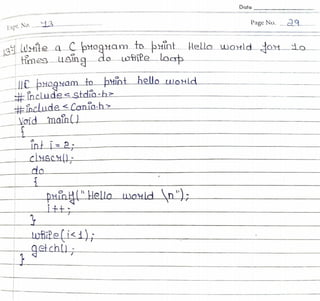 Date
Expt. No. 13
Page No. 29
13) Write a C program to print Hello world for 10
times using do while loop
//C program to print hello world
#include<stdio.h>
#include<Conio.h>
Void main()
{
int i=2;
clrscr();
do
{
printf("Hello world \n");
i++;
}
while(i<1);
getch();
}